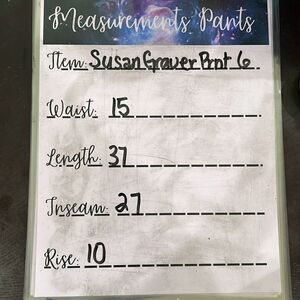 Measurements Pants
Item: Susan Graver Prnt 6
Waist: 15
Length: 37
Inseam: 27
Rise: 10